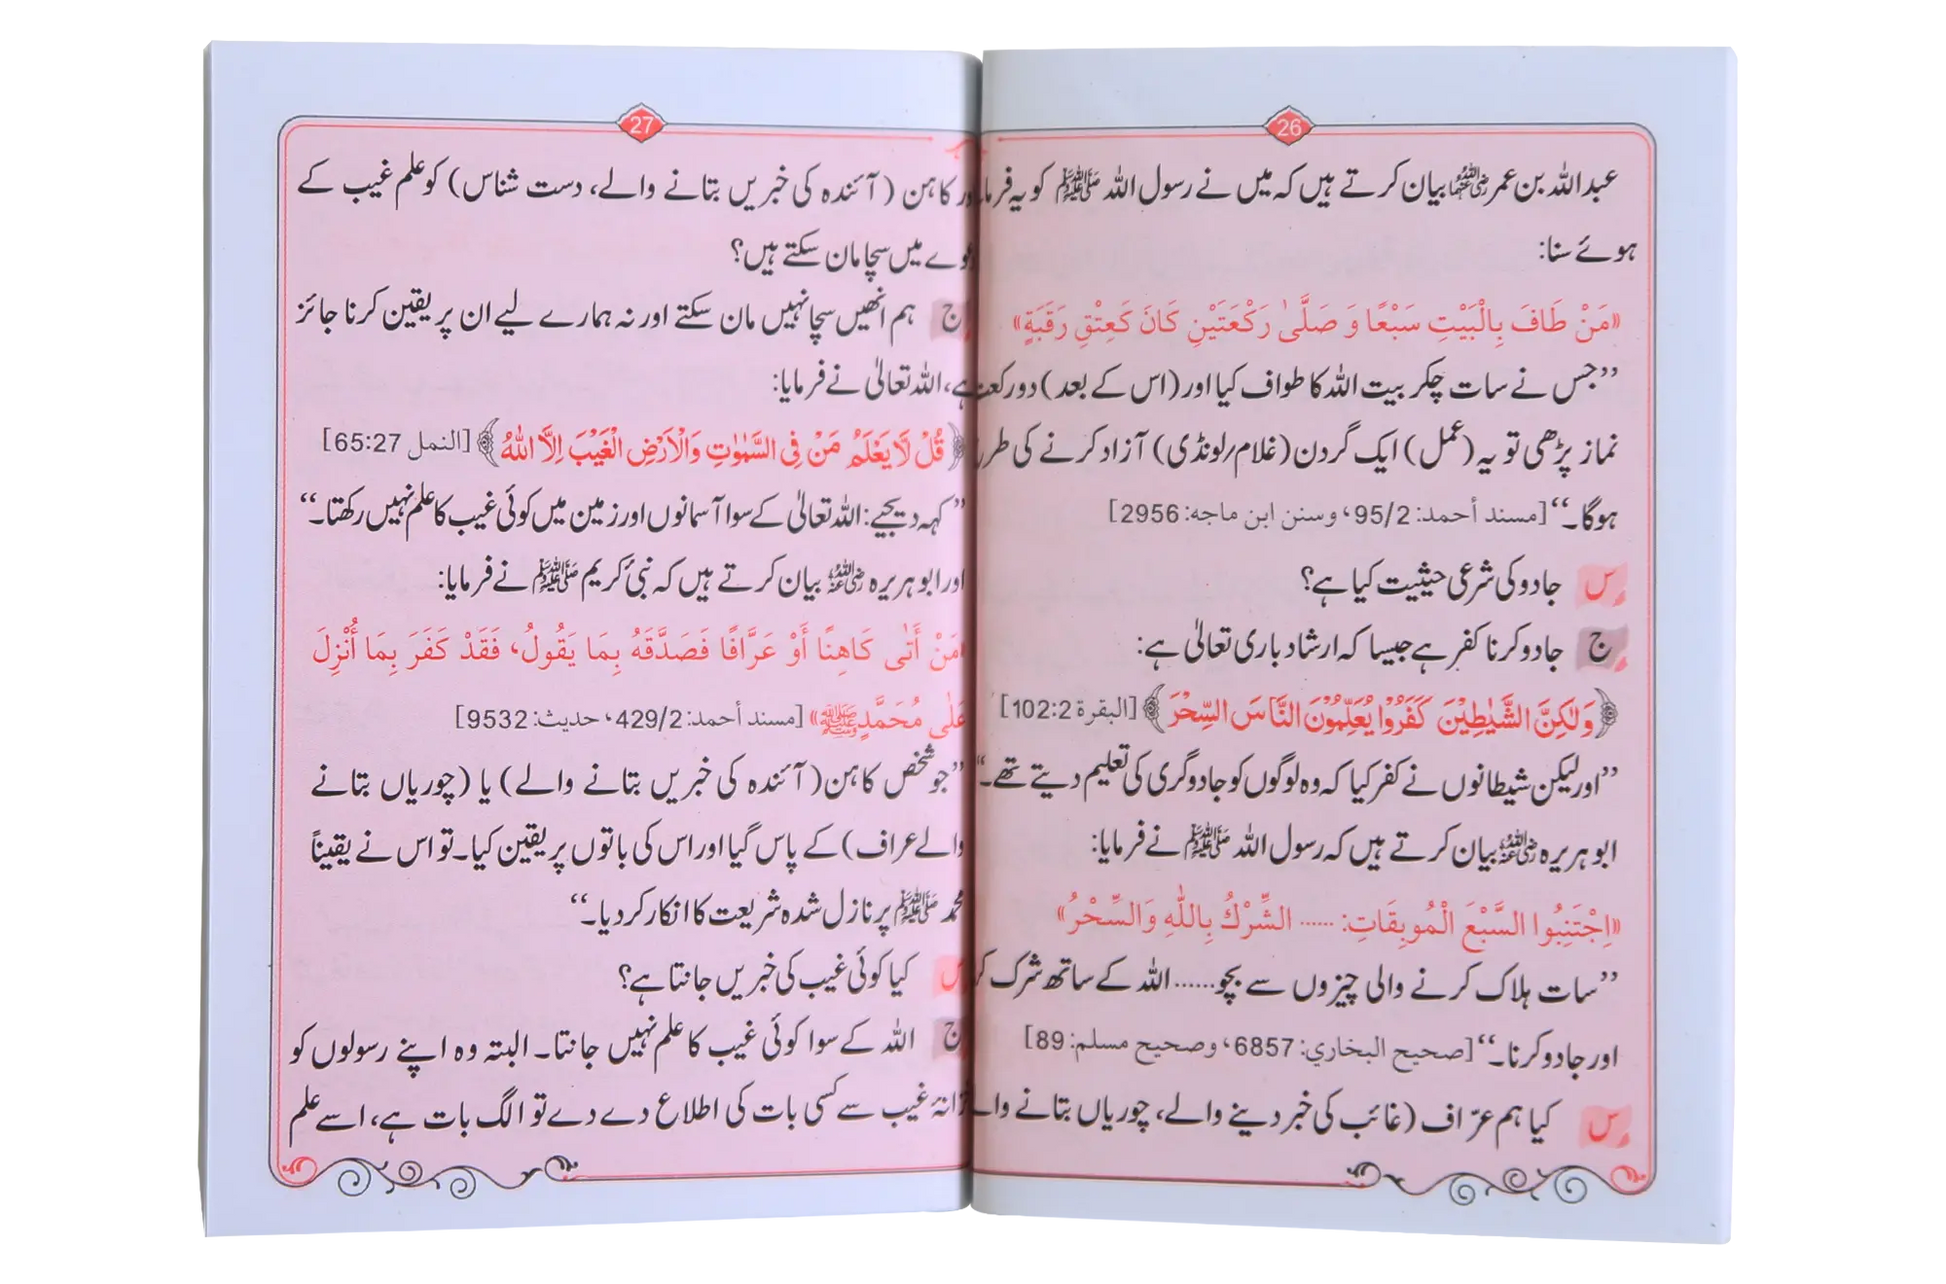 26
عبداللہ بن عمر رضی اللہ عنہما بیان کرتے ہیں کہ میں نے رسول اللہ ﷺ کو یہ فرما
ہوئے سنا:
«مَنْ طَافَ بِالْبَيْتِ سَبْعًا وَ صَلَّىٰ رَكْعَتَيْنِ كَانَ كَعِتْقِ رَقَبَةٍ»
’’جس نے سات چکر بیت اللہ کا طواف کیا اور (اس کے بعد) دو رکعت
نماز پڑھی تو یہ (عمل) ایک گردن (غلام/لونڈی) آزاد کرنے کی طرح
ہوگا۔‘‘ [مسند أحمد: 95/2، وسنن ابن ماجه: 2956]
س جادو کی شرعی حیثیت کیا ہے؟
ج جادو کرنا کفر ہے جیسا کہ ارشاد باری تعالیٰ ہے:
﴿وَلٰكِنَّ الشَّيٰطِيْنَ كَفَرُوْا يُعَلِّمُوْنَ النَّاسَ السِّحْرَ﴾ [البقرة 102:2]
’’اور لیکن شیطانوں نے کفر کیا کہ وہ لوگوں کو جادوگری کی تعلیم دیتے تھے۔‘‘
ابو ہریرہ رضی اللہ عنہ بیان کرتے ہیں کہ رسول اللہ ﷺ نے فرمایا:
«اِجْتَنِبُوا السَّبْعَ الْمُوبِقَاتِ: ...... الشِّرْكُ بِاللّٰهِ وَالسِّحْرُ»
’’سات ہلاک کرنے والی چیزوں سے بچو...... اللہ کے ساتھ شرک کر
اور جادو کرنا۔‘‘ [صحيح البخاري: 6857، وصحيح مسلم: 89]
س کیا ہم عرّاف (غائب کی خبر دینے والے، چوریاں بتانے وال
27
اور کاہن (آئندہ کی خبریں بتانے والے، دست شناس) کو علم غیب کے
میں سچا مان سکتے ہیں؟
ج ہم انھیں سچا نہیں مان سکتے اور نہ ہمارے لیے ان پر یقین کرنا جائز
ہے، اللہ تعالیٰ نے فرمایا:
﴿قُلْ لَّا يَعْلَمُ مَنْ فِي السَّمٰوٰتِ وَالْاَرْضِ الْغَيْبَ اِلَّا اللّٰهُ﴾ [النمل 65:27]
’’کہہ دیجیے: اللہ تعالیٰ کے سوا آسمانوں اور زمین میں کوئی غیب کا علم نہیں رکھتا۔‘‘
اور ابو ہریرہ رضی اللہ عنہ بیان کرتے ہیں کہ نبیٔ کریم ﷺ نے فرمایا:
«مَنْ أَتَى كَاهِنًا أَوْ عَرَّافًا فَصَدَّقَهُ بِمَا يَقُولُ، فَقَدْ كَفَرَ بِمَا أُنْزِلَ
عَلٰى مُحَمَّدٍ ﷺ» [مسند أحمد: 429/2، حديث: 9532]
’’جو شخص کاہن (آئندہ کی خبریں بتانے والے) یا (چوریاں بتانے
والے عراف) کے پاس گیا اور اس کی باتوں پر یقین کیا۔ تو اس نے یقیناً
محمد ﷺ پر نازل شدہ شریعت کا انکار کر دیا۔‘‘
س کیا کوئی غیب کی خبریں جانتا ہے؟
ج اللہ کے سوا کوئی غیب کا علم نہیں جانتا۔ البتہ وہ اپنے رسولوں کو
خزانۂ غیب سے کسی بات کی اطلاع دے دے تو الگ بات ہے، اسے علم